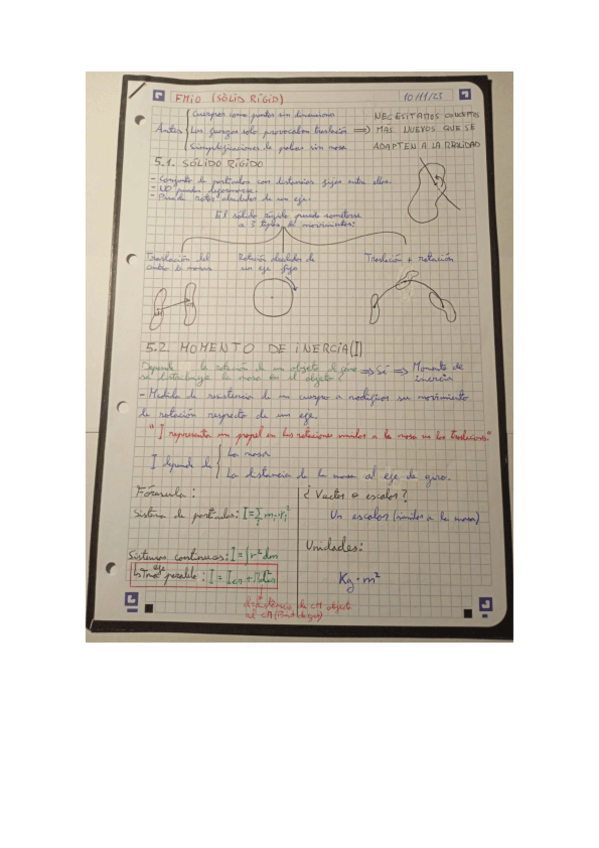 FMIO (SÓLID RÍGID) 10/11/23
Cuerpos como puntos sin dimensiones
Antes Las fuerzas solo provocaban traslación ⟹
Simplificaciones de poleas sin masa
NECESITAMOS CONCEPTOS
MÁS NUEVOS QUE SE
ADAPTEN A LA REALIDAD
5.1. SÓLIDO RÍGIDO
- Conjunto de partículas con distancias fijas entre ellas.
- NO pueden deformarse.
- Puede rotar alrededor de un eje.
El sólido rígido puede someterse
a 3 tipos de movimientos:
Traslación del
centro de masas
Rotación alrededor de
un eje fijo
Traslación + rotación
5.2. MOMENTO DE INERCIA (I)
Depende la rotación de un objeto de cómo
se distribuye la masa en el objeto? ⟹ Sí ⟹ Momento de
inercia
- Medida de resistencia de un cuerpo a modificar su movimiento
de rotación respecto de un eje.
"I representa un papel en las rotaciones similar a la masa en las traslaciones"
I depende de
La masa
La distancia de la masa al eje de giro.
Fórmula:
Sistema de partículas: I = Σ mᵢ·rᵢ²
Sistemas continuos: I = ∫r² dm
eje paralelo: I = I
distancia de CM objeto
¿Vector o escalar?
Un escalar (similar a la masa)
Unidades:
Kg·m²